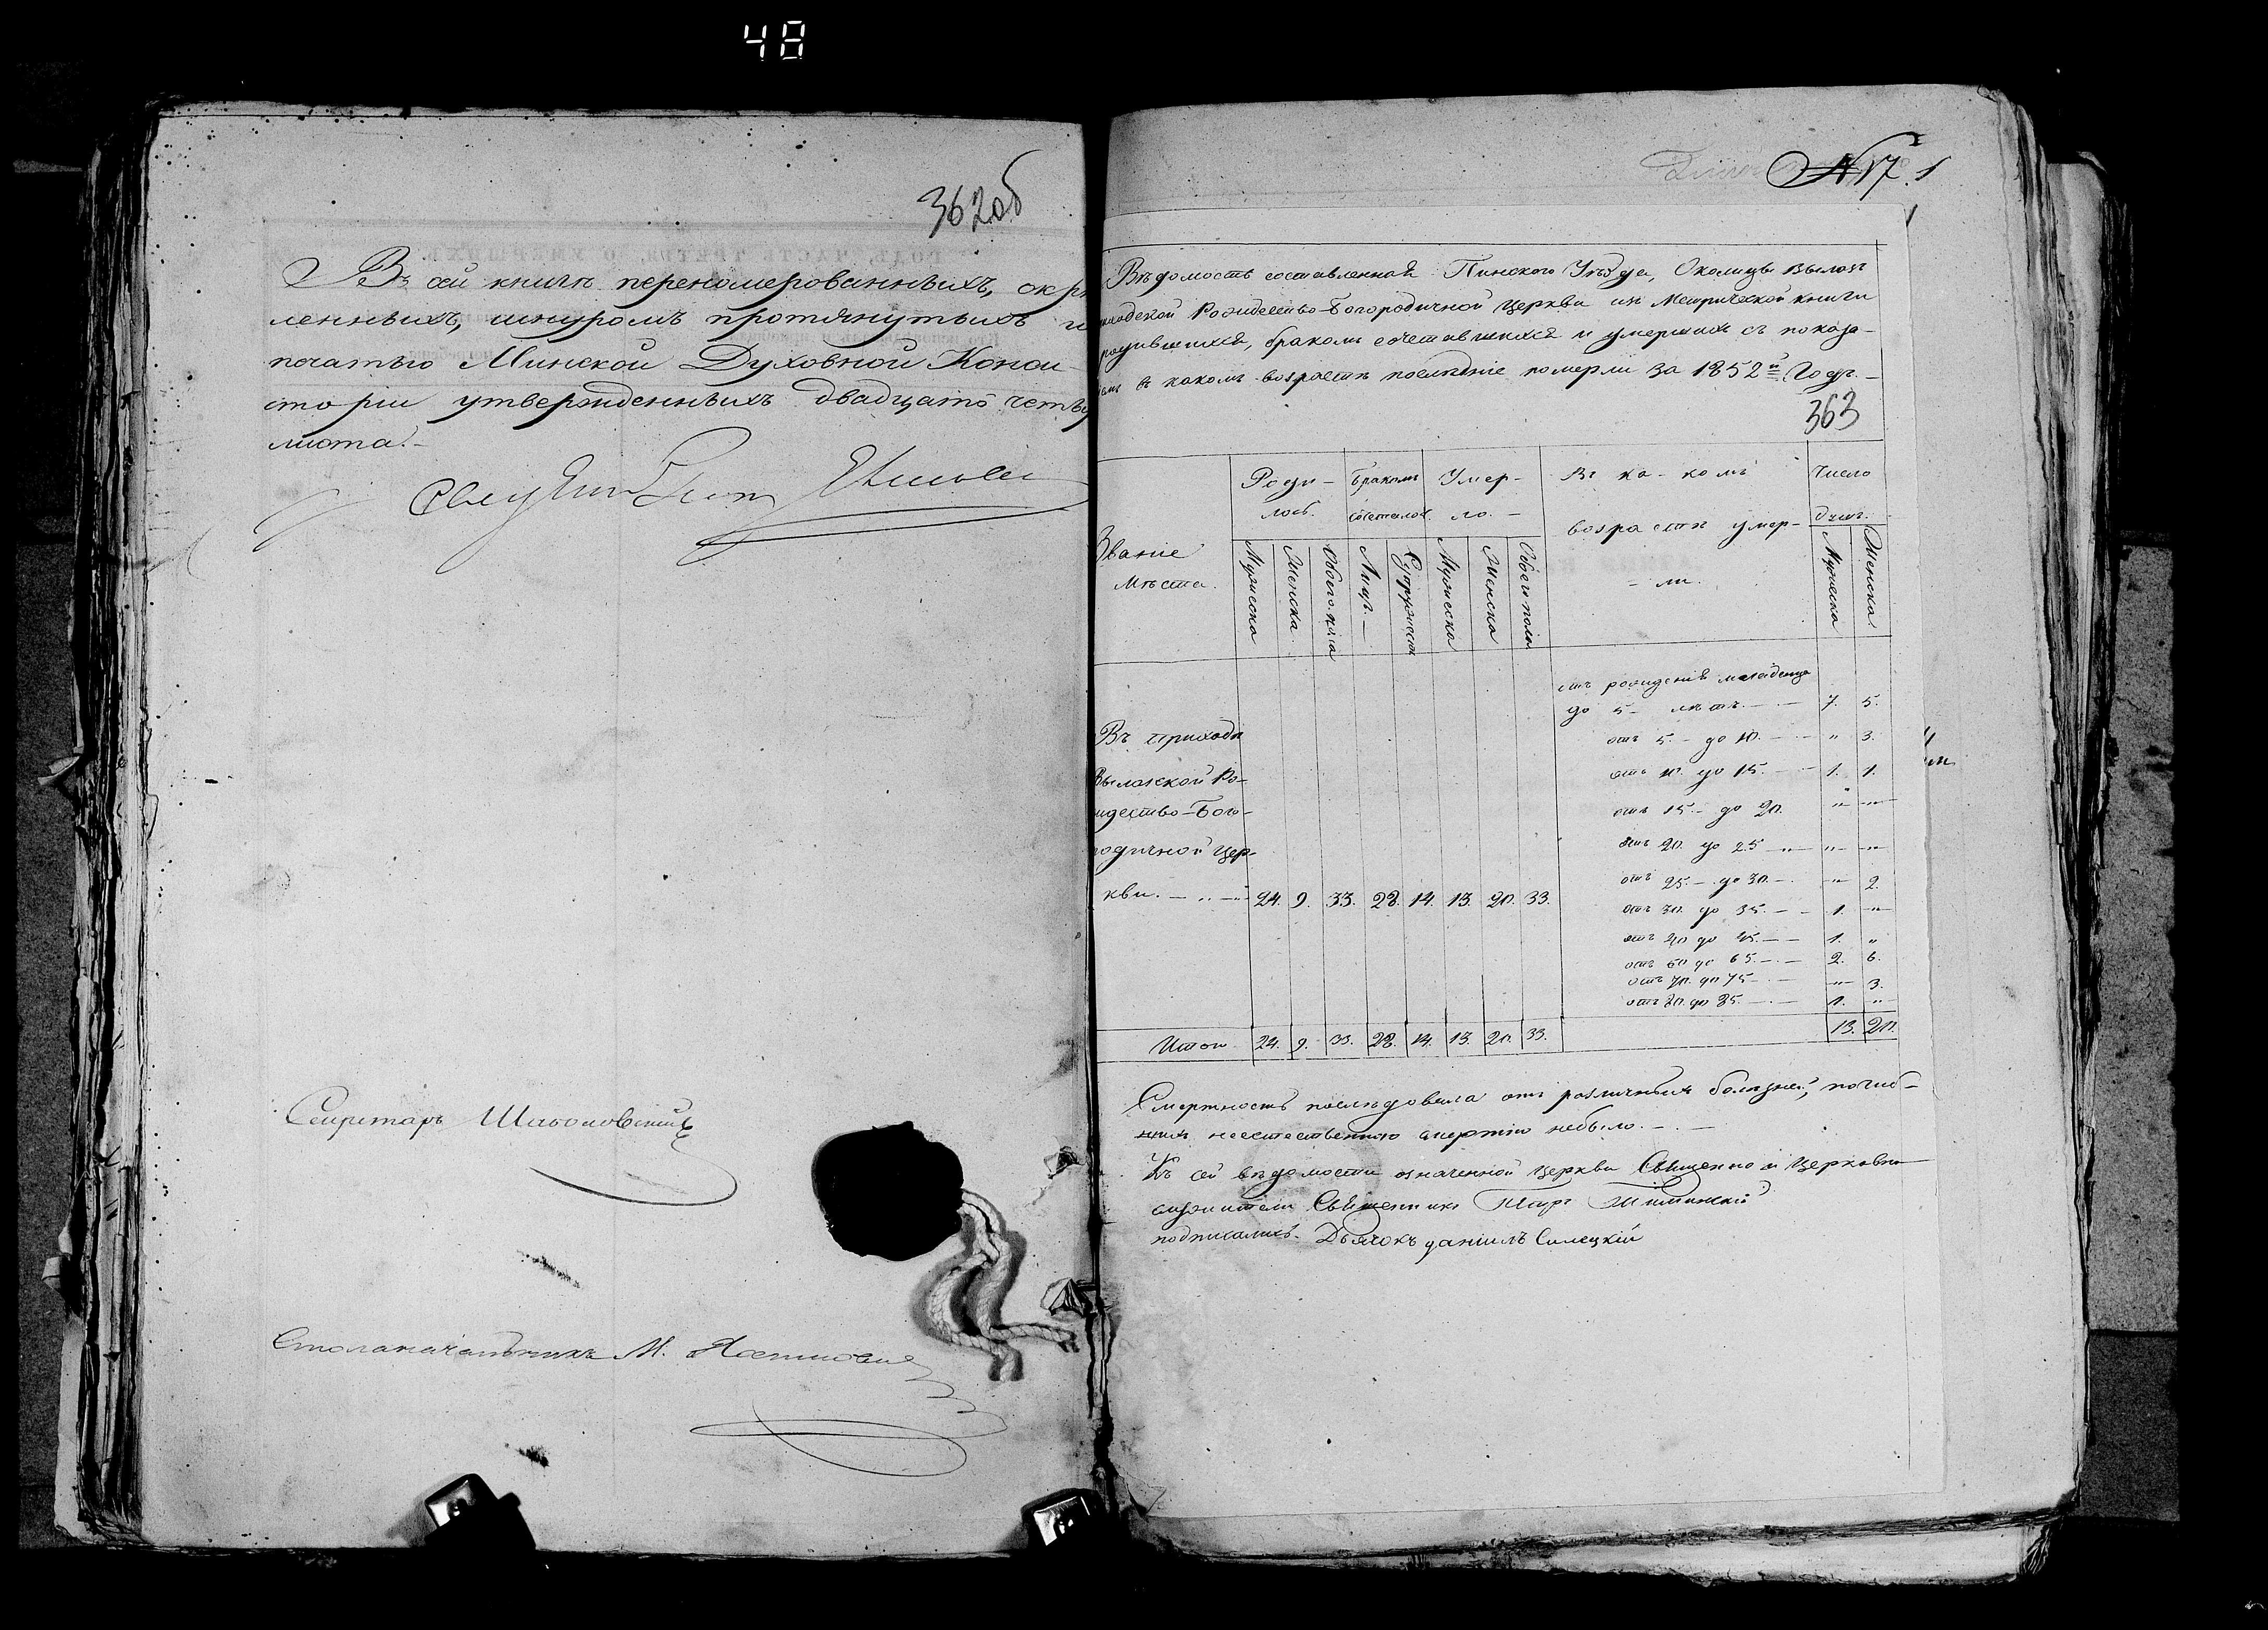 48
362об
Въ сей книгѣ перенумерованныхъ, скрѣ
пленныхъ, шнуромъ протянутыхъ и
печатью Минской Духовной Конси-
сторіи утвержденныхъ двадцать четыре
листа.
Секретарь
Столоначальникъ М.
№ 17. 1
Вѣдомость составленная Пинского Уѣзда, Околицы Вылазъ
Рождество-Богородичной Церкви изъ Метрической книги
родившихся, бракомъ сочетавшихся и умершихъ съ показа-
въ какомъ возрастѣ послѣдніе померли за 1852й Годъ.
363
Званіе Мѣста.
Роди-лось. Бракомъ сочеталось. Умер-ло. Въ ка-комъ возрастѣ умер-ли. Число душъ.
Мужеска Женска Обоего пола Лицъ Супружествъ Мужеска Женска Обоего пола Мужеска Женска
отъ рожденія младенца
до 5 лѣтъ. 7. 5.
отъ 5. до 10. " 3.
отъ 10. до 15. 1. 1.
отъ 15. до 20. " "
отъ 20. до 25 " "
отъ 25. до 30. " 2.
отъ 30. до 35. 1. "
отъ 40 до 45. 1. "
отъ 60 до 65. 2. 6.
отъ 70. до 75 " 3.
отъ 80. до 85. 1. "
Въ приходѣ
Вылазской Ро-
ждество-Бого-
родичной Цер-
кви. 24. 9. 33. 28. 14. 13. 20. 33.
Итого 24. 9. 33. 28. 14. 13. 20. 33. 13. 20.
Смертность послѣдовала отъ различныхъ болезней, погиб-
шихъ неестественною смертію небыло.
Къ сей вѣдомости означенной Церкви Священно и Церковно
служители Священникъ
подписались. Дьячокъ Даніилъ Силецкій